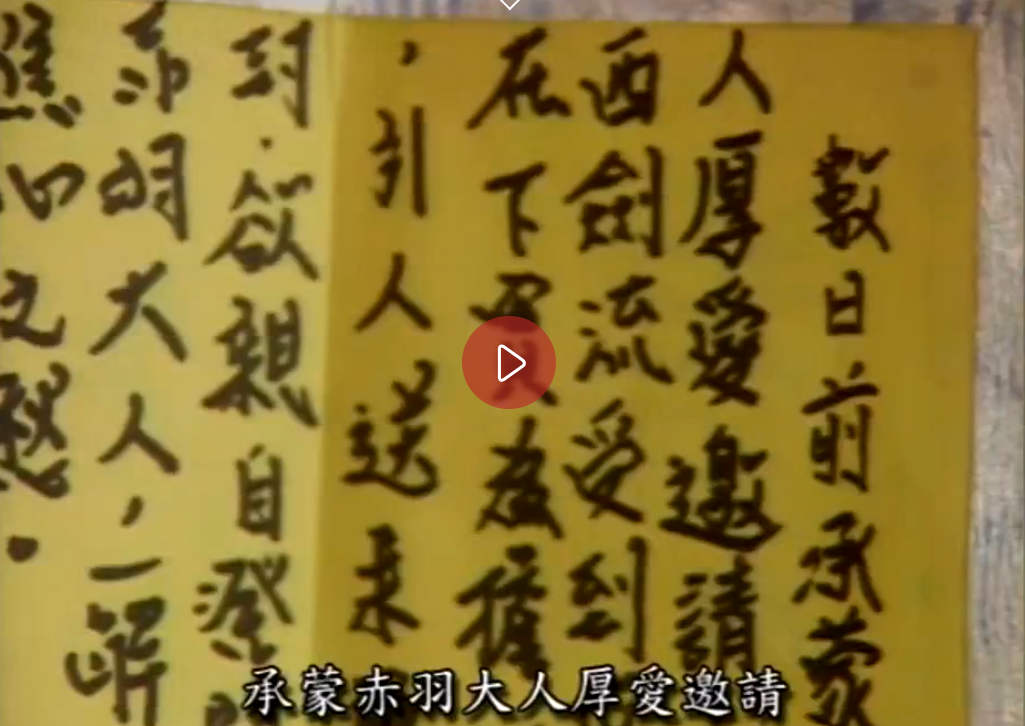 數日前承蒙
人厚愛邀請
西劍流受到
在下為
，引人送來
封．欲親自澄
赤羽大人，一解
心之愁．
承蒙赤羽大人厚愛邀請